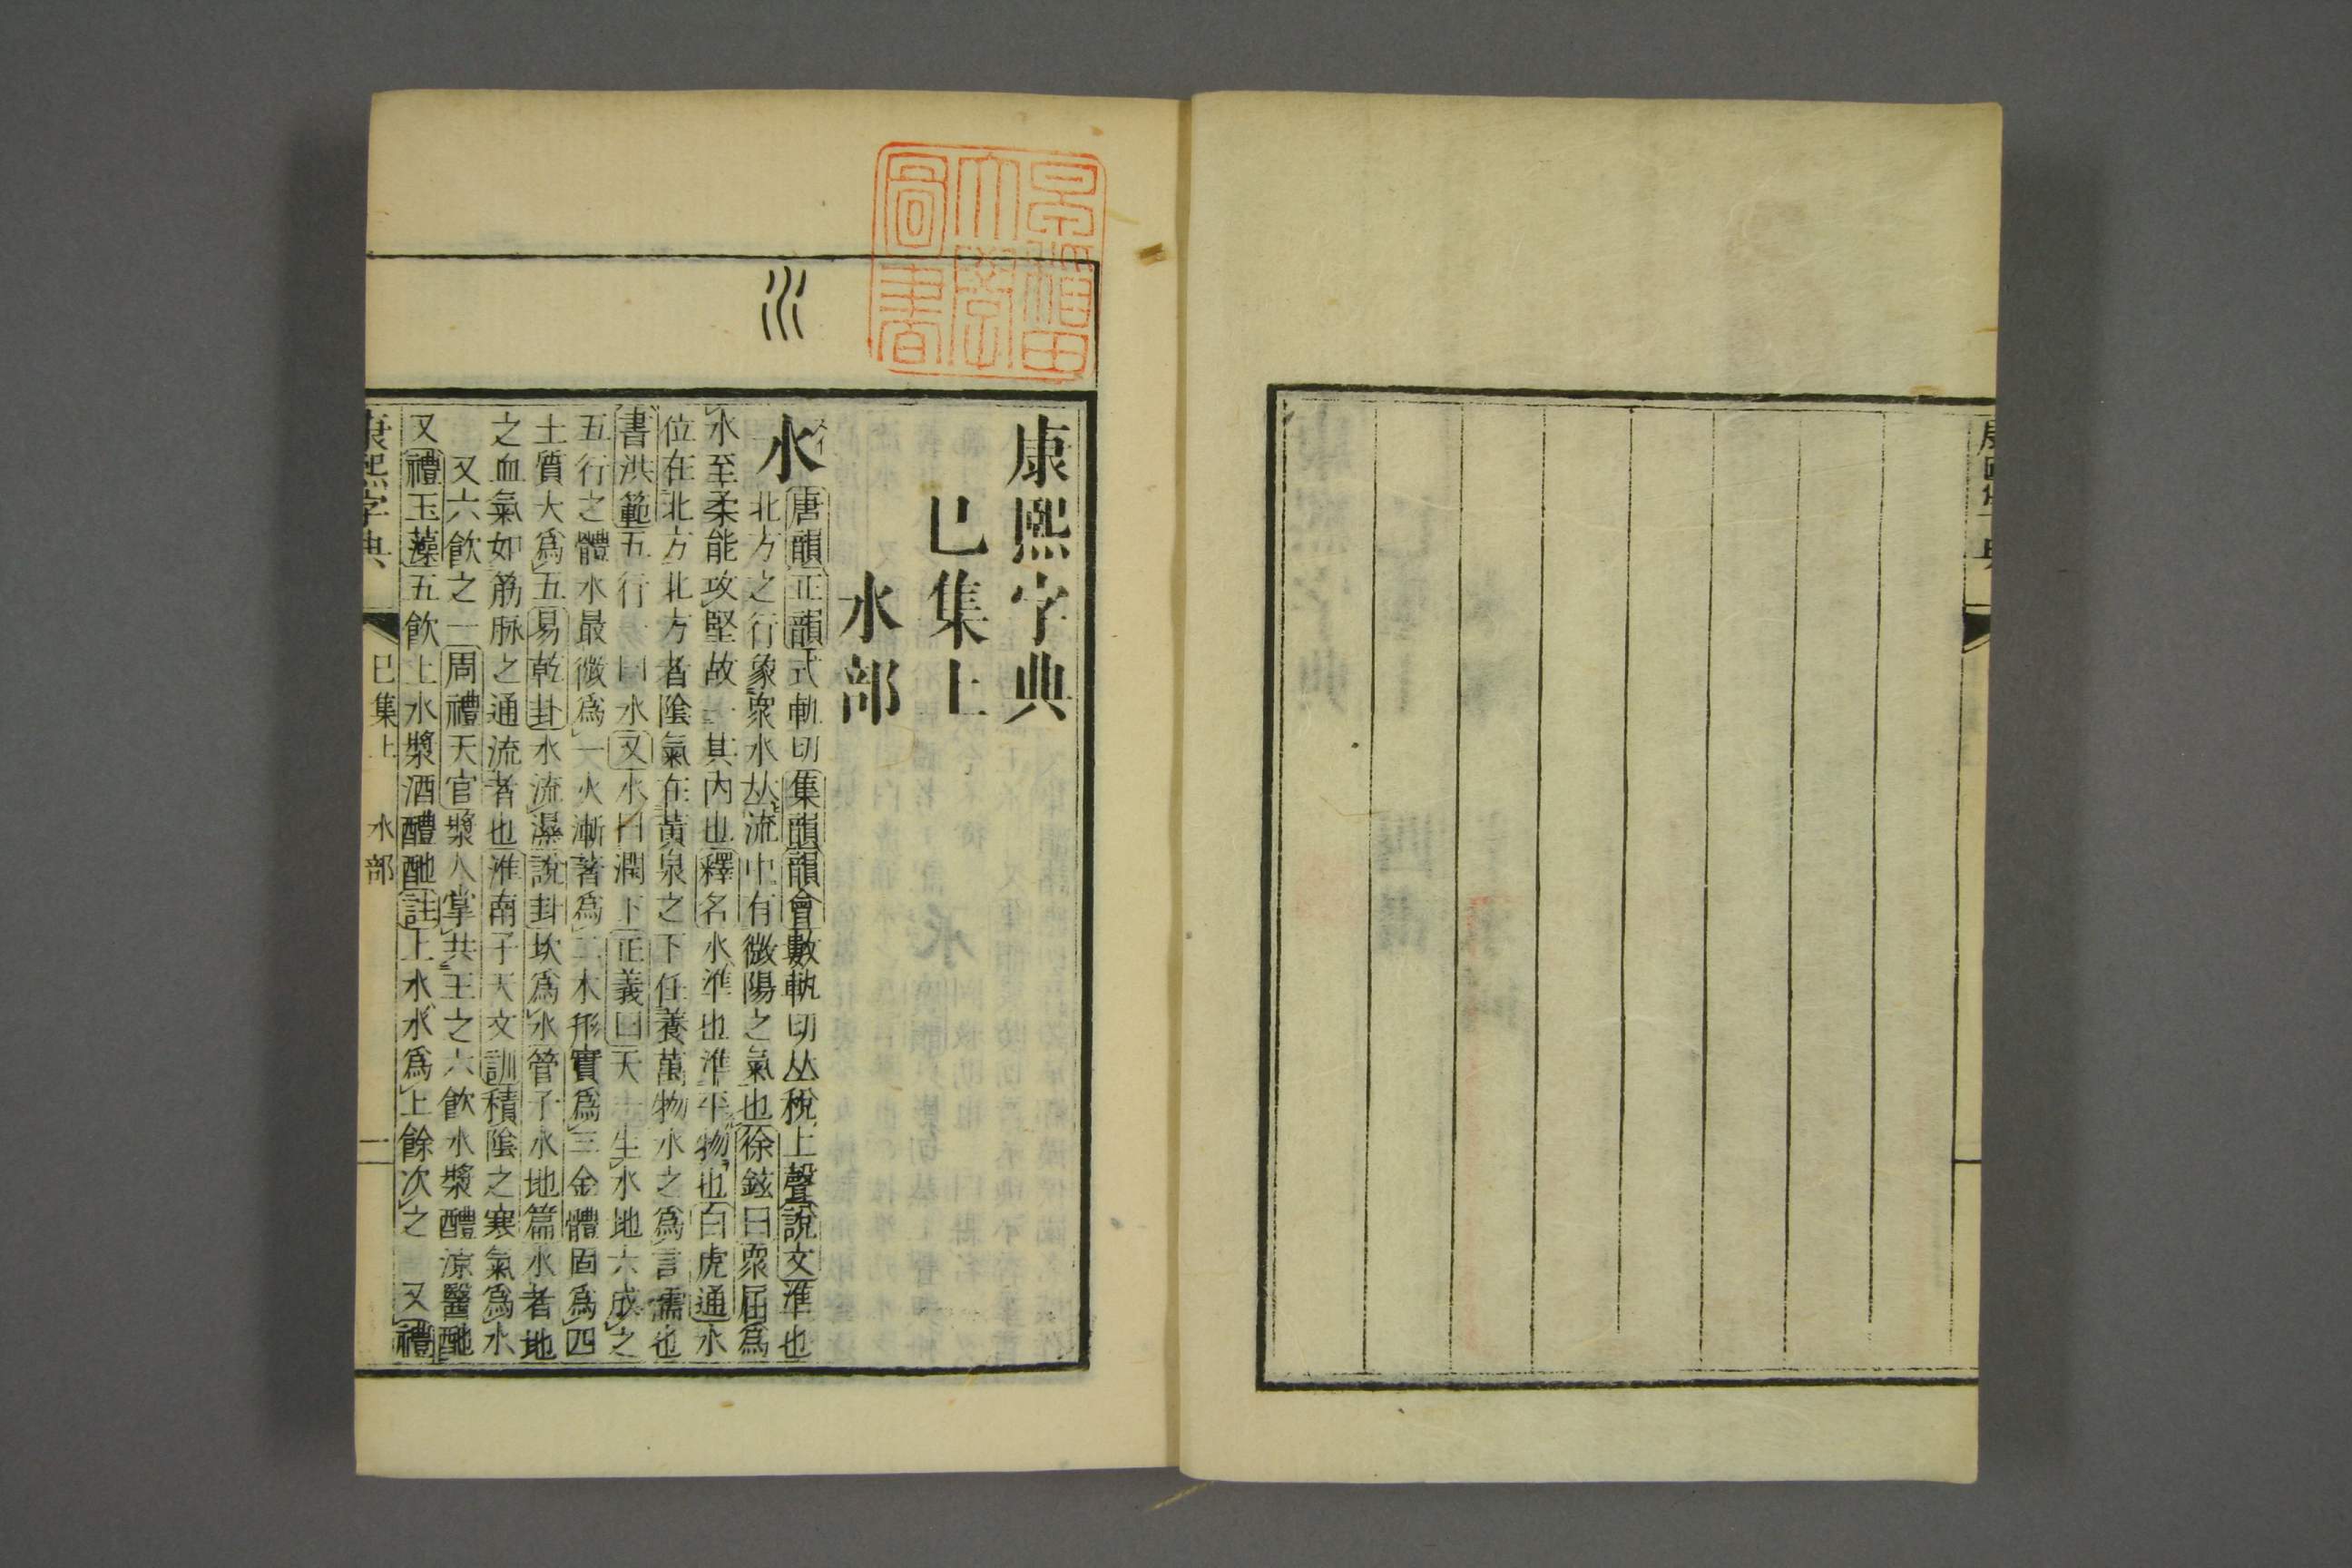 早稲田大學圖書
康熙字典
巳集上
水部
水
唐韻正韻式軌切集韻韻會數軌切𠀤稅上聲說文準也
北方之行象衆水𠀤流中有微陽之氣也徐鉉曰衆屈爲
水至柔能攻堅故一其內也釋名水準也準平物也白虎通水
位在北方北方者陰氣在黃泉之下任養萬物水之爲言濡也
書洪範五行一曰水又水曰潤下正義曰天一生水地六成之
五行之體水最微爲一火漸著爲二木形實爲三金體固爲四
土質大爲五易乾卦水流濕說卦坎爲水管子水地篇水者地
之血氣如筋脉之通流者也淮南子天文訓積陰之寒氣爲水
又六飮之一周禮天官漿人掌共王之六飮水漿醴涼醫酏
又禮玉藻五飮上水漿酒醴酏註上水水爲上餘次之 又禮
康熙字典 巳集上 水部 二